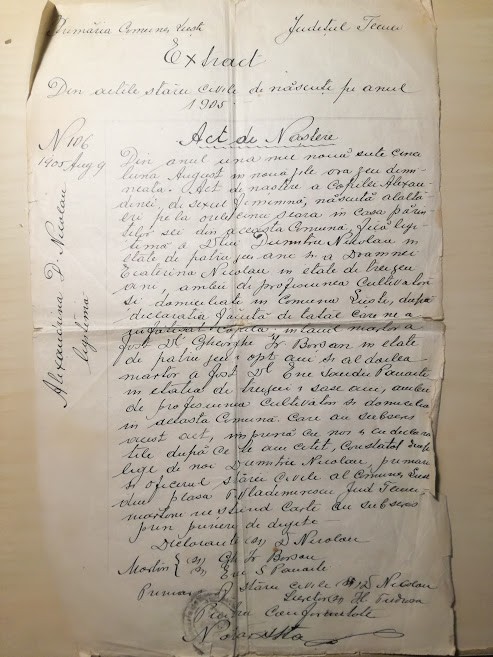 Primăria Comunei
Județul Tecuci
Extract
Din actele stărei civile de născuți pe anul
1905.
N 106
1905 Aug 9
Alexandrina D. Nicolau
legitima
Act de Naștere
Din anul una mie nouă sute cinci
luna August in nouă zile ora zeci dimi-
neața. Act de nastere a Copilei Alexan-
drina, de sexul feminin, născută alaltă
eri pe la orele cinci seara in casa părin-
ților sei din aceasta Comună, fiică legi-
timă a Dlui Dumitru Nikolau in
etate de patru zeci ani si a Doamnei
Ecaterina Nicolau in etate de trei zeci
ani, ambii de profesiunea Cultivatori
si domiciliati in Comuna după
declaratia făcută de tatăl care ne a
infatisat Copila. intaiul martor a
fost Dl Gheorghe Gr Borșan in etate
de patru zeci și opt ani si al doilea
martor a fost Dl Ene Panaite
in etatea de trei zeci si sase ani, ambii
de profesiunea cultivatori si domiciliati
in aceasta Comuna. Care au subscris
acest act, impreună cu noi si cu declaran-
tele după ce li am citit, Constatat după
lege de noi Dumitru Nicolau, primar
si oficerul stărei civile al Comunei
din plasa Jud Tecuci
martori nestiind carte au subscris
prin punere de degite
Declarante (ss) D Nicolau
Martori { (ss) Gh Gr Borșan
(ss) Ene S Panaite
Primar stărei civile (ss) D Nicolau
Pentru Conformitate